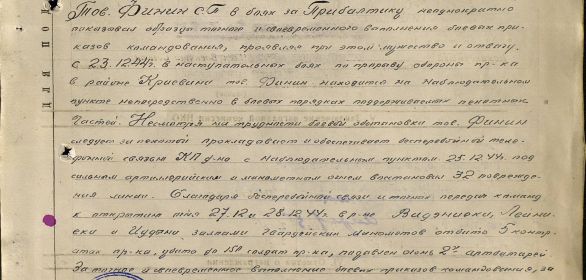 Тов. Финин С.П. в боях за Прибалтику неоднократно
показовал образцы точного и своевременного выполнения боевых при-
казов командования, проявляя при этом мужество и отвагу.
С 23.12.44г. в наступательных боях по прорыву обороны пр-ка
в районе Криевини тов. Финин находится на наблюдательном
пункте непосредственно в боевых порядках поддерживаемых пехотных
частей. Несмотря на трудности боевой обстановки тов. Финин
следует за пехотой прокладывает и обеспечивает бесперебойной теле-
фонной связью КП д-на с наблюдательным пунктом 25.12.44г. под
сильным артиллерийским и минометным огнем восстановил 32 поврежде-
ния линии. Благодаря бесперебойной связи и точных передач команд
к открытию огня 27.12 и 28.12.44г. в р-не
и залпами гвардейских минометов отбито 5 контр-
атак пр-ка, убито до 150 солдат пр-ка, подавлен огонь 2х артбатарей.
За точное и своевременное выполнение боевых приказов командования, за